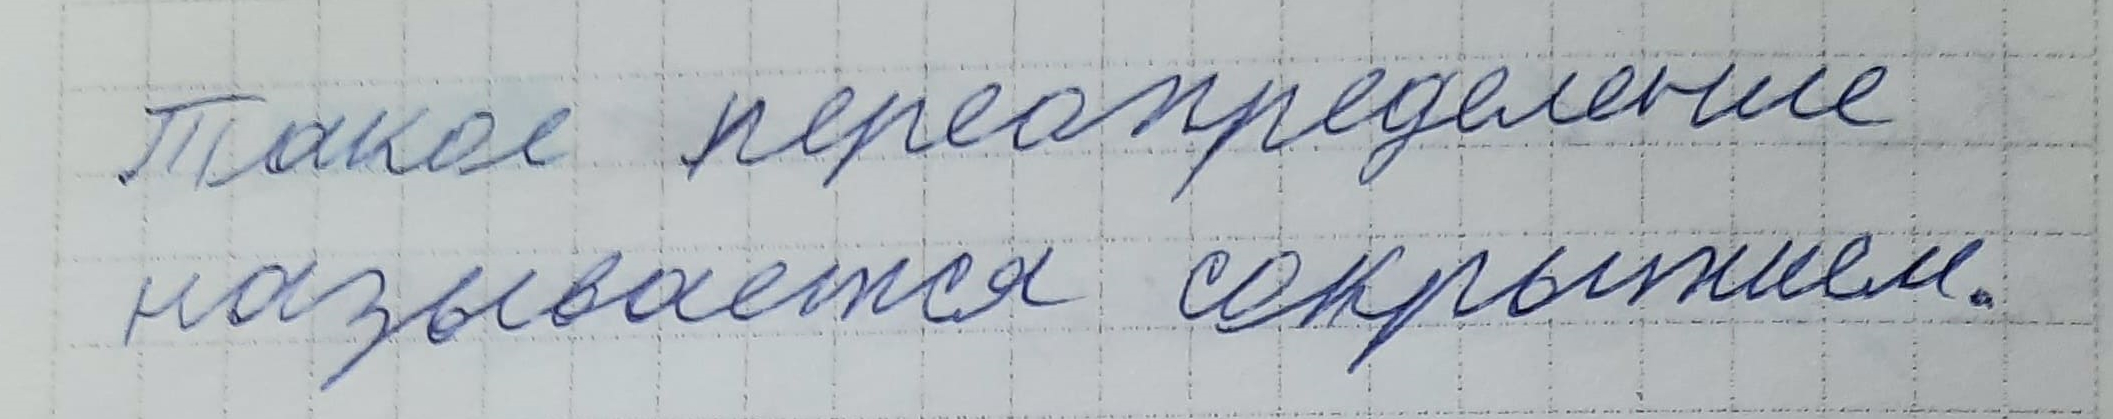 Такое переопределение
называется сокрытием.